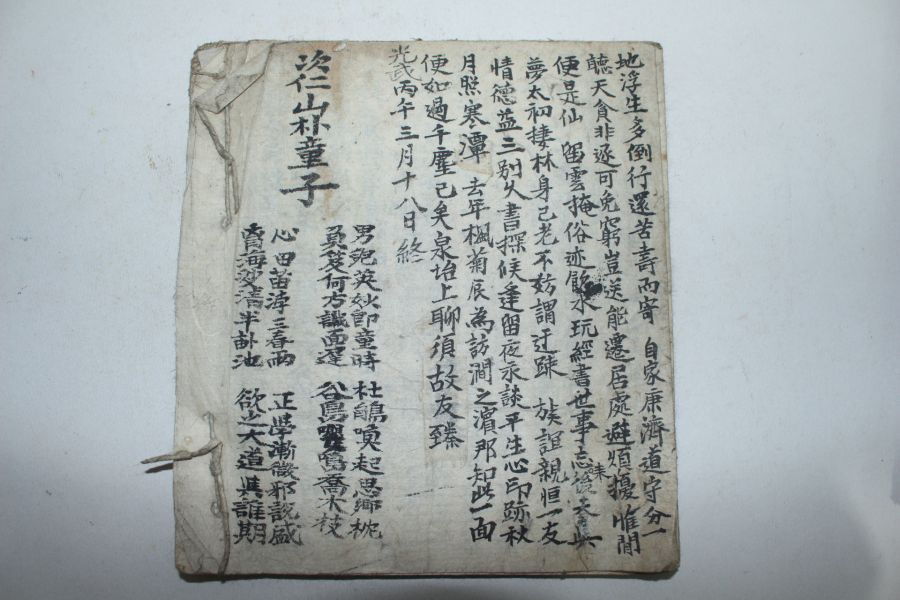 地浮生多倒行還苦壽而寄 自家康濟道守分一
聽天貪非逐可免窮豈送能遷居處避煩擾惟閒
便是仙 留雲掩俗迹飮水玩經書世事忘後天眞
夢太初棲林身已老不妨謂迂踈 族誼親恒一友
情德益三別久書探候逢留夜永談平生心印跡秋
月照寒潭 去年楓菊辰為訪澗之濱那知此一面
便如過千塵已矣泉坮上聊須故友臻
光武丙午三月十八日終
次仁山朴童子
男兒英妙即童時 杜鵑喚起思鄕枕
負笈何方識面遲 谷鳥嚶鳴喬木枝
心田苗渟三春雨 正學漸微邪說盛
清半畝池 欲之大道與誰期